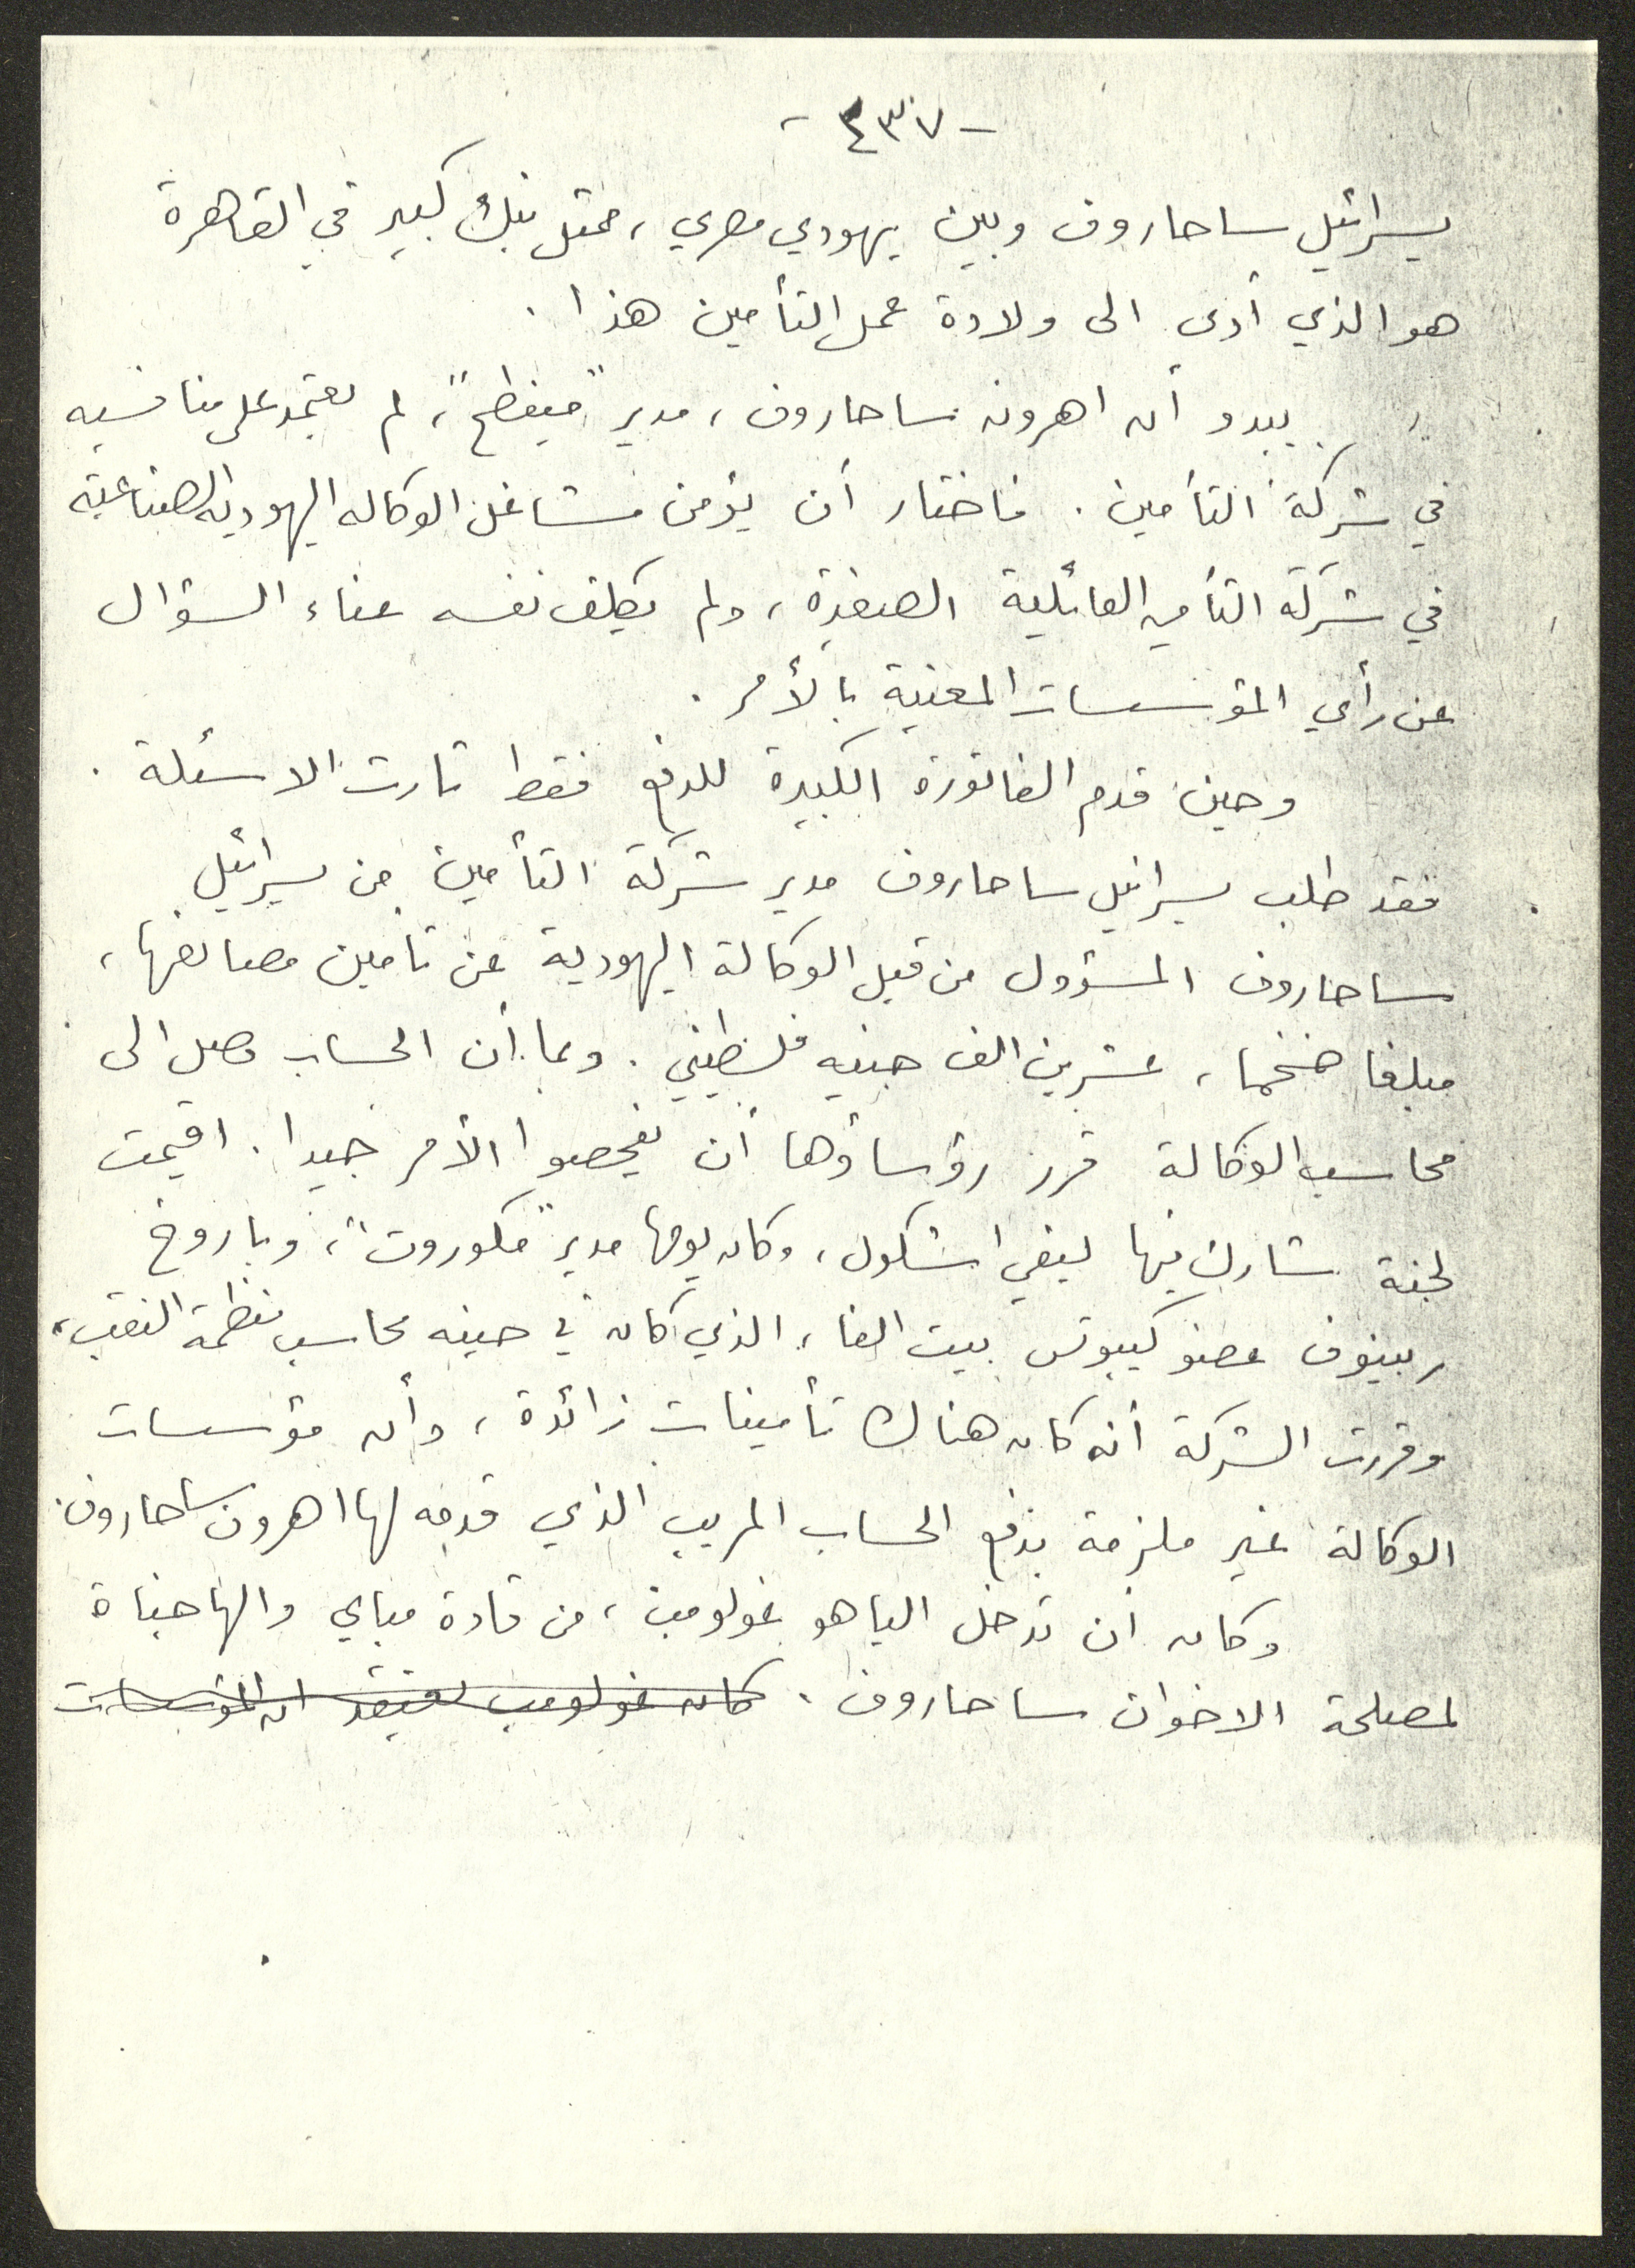 - ٤٣٧ -
يسرائيل ساحاروف وبين يهودي مصري ، ممثل بنك كبير في القاهرة
هو الذي أدى الى ولادة عمل التأمين هذا .
يبدو أن اهرون ساحاروف ، مدير "مينطح" ، لم يعتمد على منافسيه
في شركة التأمين . فاختار أن يؤمن مشاغل الوكاله اليهوديه الصناعية
في شركة التأمين العائلية الصغيرة ، ولم يكلف نفسه عناء السؤال
عن رأي المؤسسات المعنية بالأمر .
وحين قدم الفاتورة الكبيرة للدفع فقط ثارت الاسئلة .
فقد طلب يسرائيل ساحاروف مدير شركة التأمين من يسرائيل
ساحاروف المسؤول من قبل الوكالة اليهودية عن تامين مصانعها ،
مبلغا ضخما ، عشرين الف جنيه فلسطيني . وبما أن الحساب وصل الى
محاسب الوكالة قرر رؤساؤها أن يفحصوا الأمر جيدا . اقيمت
لجنة شارك فيها ليفي اشكول ، وكان يومها مدير "مكوروت" ، وباروخ
ربينوف عضو كيبوتس بيت الفا ، الذي كان في حينه محاسب منظمة النقب ،
وقررت الشركة أنه كان هناك تأمينات زائدة ، وأن مؤسسات
الوكالة غير ملزمة بدفع الحساب المريب الذي قدمه لها اهرون ساحاروف .
وكان ان تدخل الياهو غولومب ، من قادة مباي والهاجناة
لمصلحة الاخوان ساحاروف . كان غولومب يعتقد ان المؤسسات